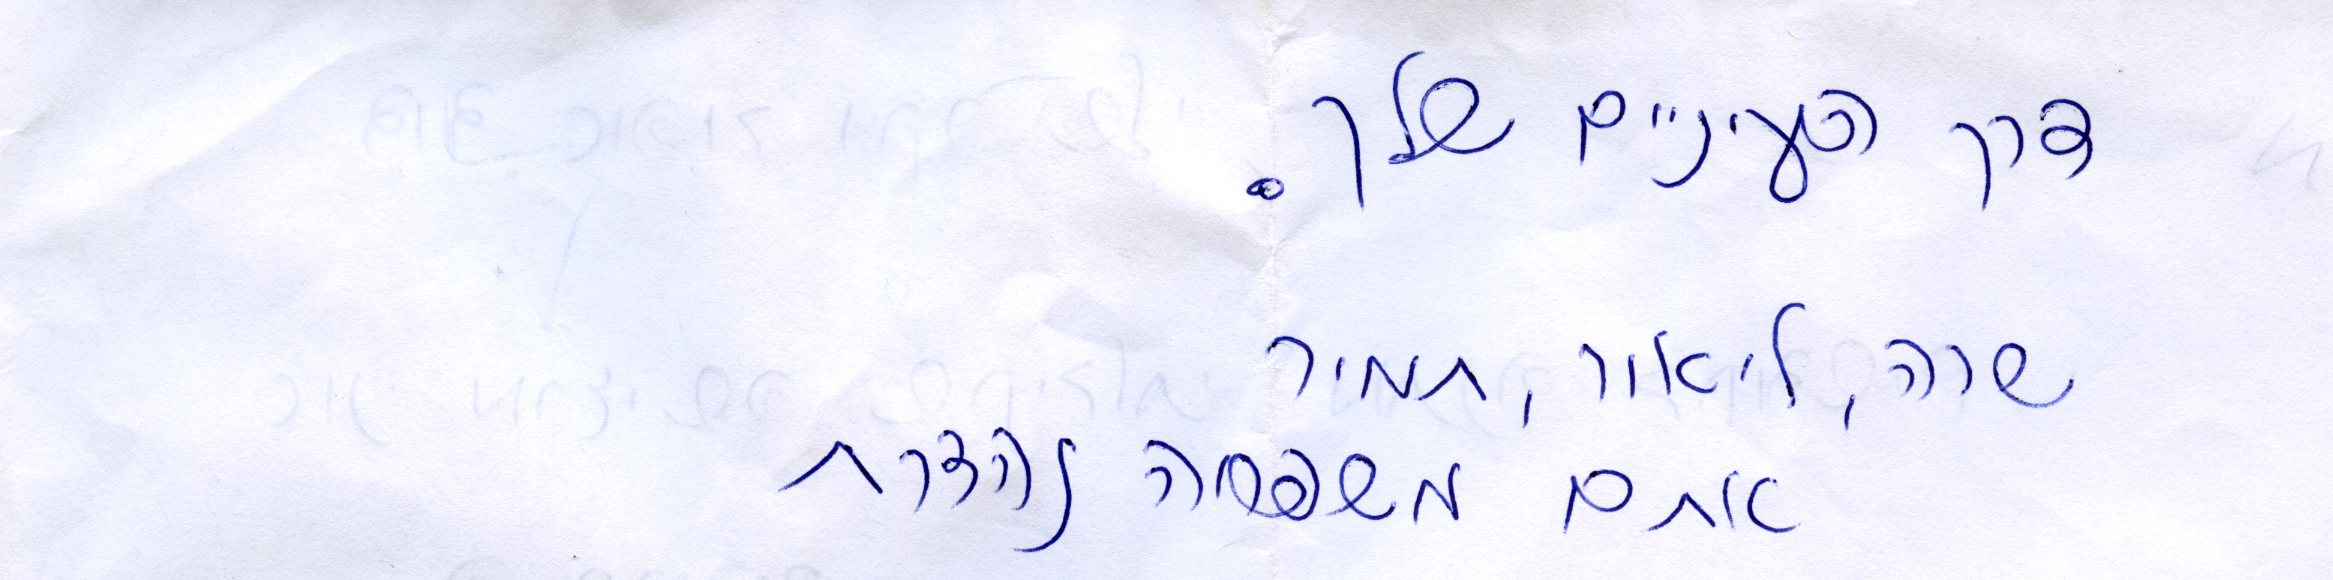 דרך העיניים שלך.
שרה, ליאור, תמיר
אתם משפחה נהדרת